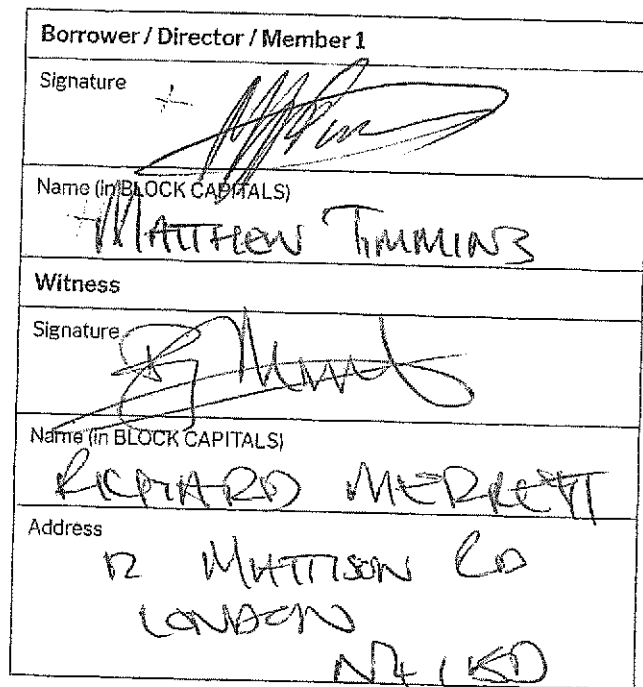 Borrower / Director / Member 1
Signature
Name (in BLOCK CAPITALS)
MATTHEW TIMMINS
Witness
Signature
Name (in BLOCK CAPITALS)
RICHARD MERRETT
Address
12 MATTISON RD
LONDON
N4 1BD